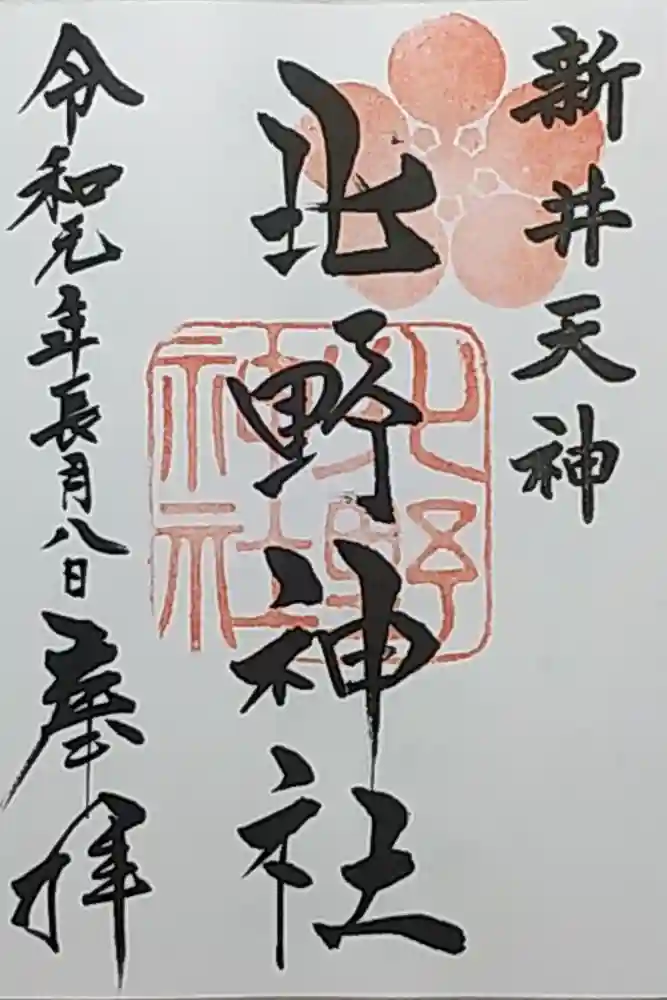 新井天神
北野神社
北野
神社
令和元年長月八日
奉拝